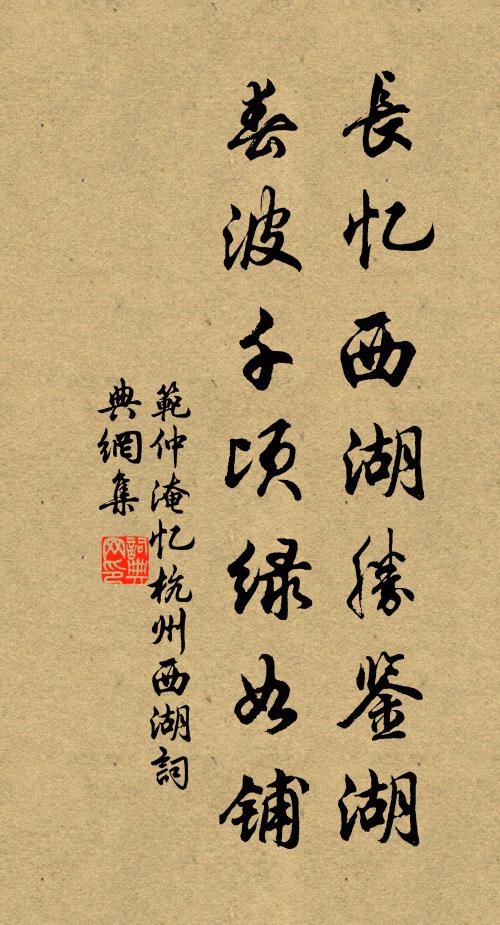 長忆西湖勝鉴湖
春波千顷绿如铺
範仲淹忆杭州西湖詞
典網集
詞典网印